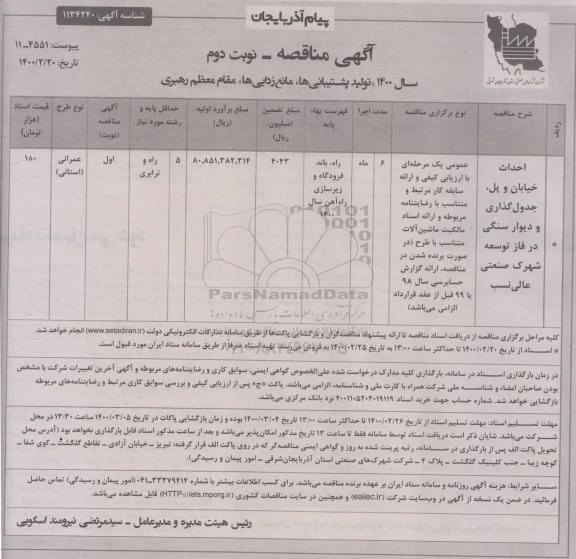 پیام آذربایجان
شناسه آگهی: ۱۱۳۴۲۴۰
آگهی مناقصه ـ نوبت دوم
پیوست: ۴۵۵۱ـ۱۱
تاریخ: ۱۴۰۰/۲/۲۰
سال ۱۴۰۰ «تولید، پشتیبانی‌ها، مانع‌زدایی‌ها، مقام معظم رهبری
ردیف
شرح مناقصه
نوع برگزاری مناقصه
مدت اجرا
فهرست بهاء پایه
مبلغ تضمین (میلیون ریال)
مبلغ برآورد اولیه (ریال)
حداقل پایه و رشته مورد نیاز
آگهی مناقصه (نوبت)
نوع طرح
قیمت اسناد (هزار تومان)
*
احداث خیابان و پل، جدول‌گذاری و دیوار سنگی در فاز توسعه شهرک صنعتی عالی‌نسب
عمومی یک مرحله‌ای با ارزیابی کیفی و ارائه سابقه کار مرتبط و متناسب با رضایتنامه مربوطه و ارائه اسناد مالکیت ماشین‌آلات متناسب با طرح (در صورت برنده شدن در مناقصه، ارائه گزارش حسابرسی سال ۹۸ یا ۹۹ قبل از عقد قرارداد الزامی می‌باشد)
۶ ماه
راه، باند فرودگاه و زیرسازی راه‌آهن سال ۱۴۰۰
۴۰۴۳
۸۰,۸۵۱,۳۸۲,۳۱۴
۵ راه و ترابری
اول
عمرانی (استانی)
۱۸۰
ParsNamadData
کلیه مراحل برگزاری مناقصه از دریافت اسناد مناقصه تا ارائه پیشنهاد مناقصه‌گران و بازگشایی پاکت‌ها از طریق سامانه تدارکات الکترونیکی دولت (www.setadiran.ir) انجام خواهد شد.
* اسناد از تاریخ ۱۴۰۰/۰۲/۲۰ تا حداکثر ساعت ۱۳:۰۰ به تاریخ ۱۴۰۰/۰۲/۲۵ به فروش می‌رسد. تهیه اسناد صرفاً از طریق سامانه ستاد ایران مورد قبول است.
در زمان بارگذاری اسناد در سامانه، بارگذاری کلیه مدارک درخواست شده علی‌الخصوص گواهی ایمنی، سوابق کاری و رضایتنامه‌های مربوطه و آگهی آخرین تغییرات شرکت با مشخص
بودن صاحبان امضاء و شناسه ملی شرکت همراه با کارت ملی و شناسنامه، الزامی می‌باشد. پاکت «ج» پس از ارزیابی کیفی و بررسی سوابق کاری مرتبط و رضایتنامه‌های مربوطه
بازگشایی خواهد شد. شماره حساب جهت خرید اسناد ۴۰۰۱۱۰۵۲۰۴۰۱۹۱۱۹ نزد بانک مرکزی می‌باشد.
مهلت تسلیم اسناد: مهلت تسلیم اسناد از تاریخ ۱۴۰۰/۰۲/۲۶ تا حداکثر ساعت ۱۳:۰۰ تاریخ ۱۴۰۰/۰۳/۰۴ بوده و زمان بازگشایی پاکات در تاریخ ۱۴۰۰/۰۳/۰۵ ساعت ۱۳:۳۰ در محل
شرکت می‌باشد. شایان ذکر است دریافت اسناد توسط سامانه فقط تا ساعت ۱۳ تاریخ مذکور امکان‌پذیر می‌باشد و بعد از ساعت مذکور اسناد قابل بارگذاری نخواهد بود (آدرس محل
تحویل پاکت الف پس از بارگذاری در سامانه، رتبه پرینت شده به روز و گواهی ایمنی مناقصه‌گر که در روی پاکت الف قرار گرفته: تبریز ـ خیابان آزادی ـ تقاطع گلگشت ـ کوی شفا ـ
کوچه زیبا ـ جنب کلینیک گلگشت ـ پلاک ۲ ـ شرکت شهرک‌های صنعتی استان آذربایجان‌شرقی ـ امور پیمان و رسیدگی).
سایر شرایط: هزینه آگهی روزنامه و سامانه ستاد ایران بر عهده برنده مناقصه می‌باشد. برای کسب اطلاعات بیشتر با شماره ۰۴۱-۳۳۳۷۹۴۱۴ (امور پیمان و رسیدگی) تماس حاصل
فرمایند. در ضمن یک نسخه از آگهی در وب‌سایت شرکت (eaiec.ir) و همچنین در سایت مناقصات کشوری (HTTP://iets.mporg.ir) قابل مشاهده می‌باشد.
رئیس هیئت مدیره و مدیرعامل ـ سیدمرتضی نیرومند اسکویی